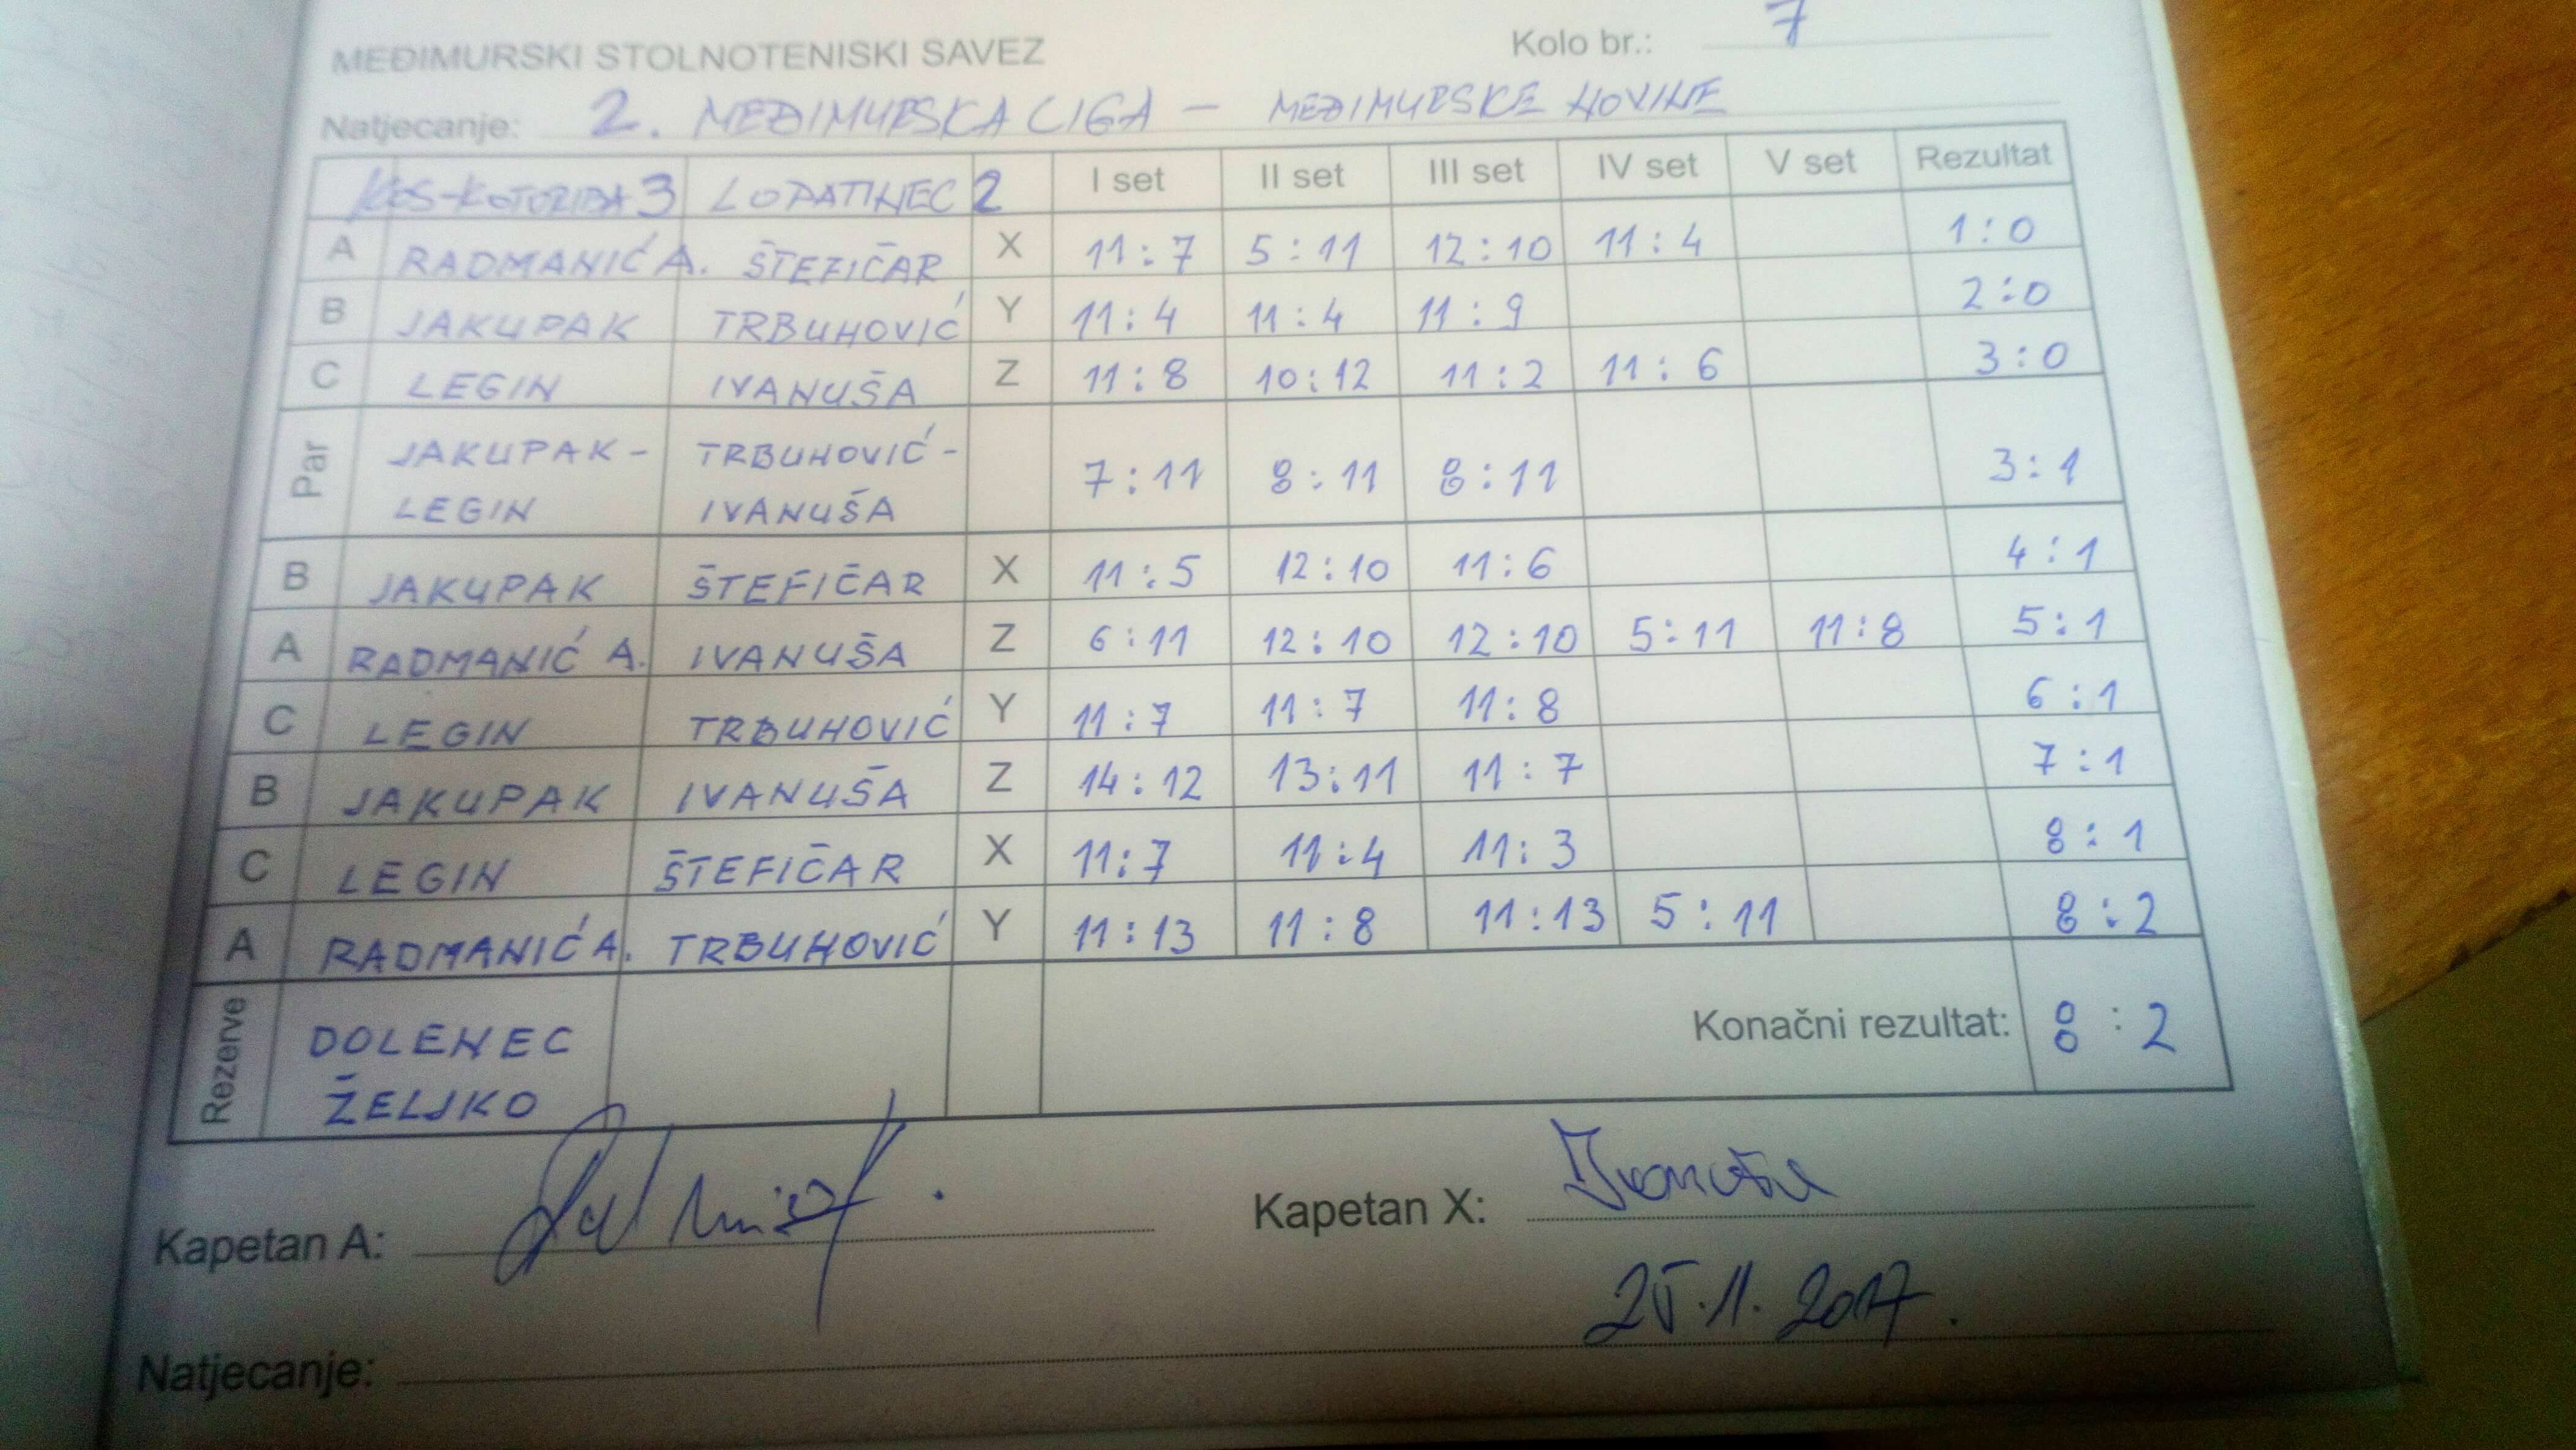 MEĐIMURSKI STOLNOTENISKI SAVEZ Kolo br.: 7
Natjecanje: 2. MEĐIMURSKA LIGA – MEĐIMURSKE NOVINE
KOS-KOTORIBA 3 LOPATINEC 2 I set II set III set IV set V set Rezultat
A RADMANIĆ A. ŠTEFIČAR X 11:7 5:11 12:10 11:4 1:0
B JAKUPAK TRBUHOVIĆ Y 11:4 11:4 11:9 2:0
C LEGIN IVANUŠA Z 11:8 10:12 11:2 11:6 3:0
Par JAKUPAK - TRBUHOVIĆ - 7:11 8:11 8:11 3:1
LEGIN IVANUŠA
B JAKUPAK ŠTEFIČAR X 11:5 12:10 11:6 4:1
A RADMANIĆ A. IVANUŠA Z 6:11 12:10 12:10 5:11 11:8 5:1
C LEGIN TRBUHOVIĆ Y 11:7 11:7 11:8 6:1
B JAKUPAK IVANUŠA Z 14:12 13:11 11:7 7:1
C LEGIN ŠTEFIČAR X 11:7 11:4 11:3 8:1
A RADMANIĆ A. TRBUHOVIĆ Y 11:13 11:8 11:13 5:11 8:2
Rezerve DOLENEC Konačni rezultat: 8:2
ŽELJKO
Kapetan A: Kapetan X: Ivanuša
25.11.2017.
Natjecanje: